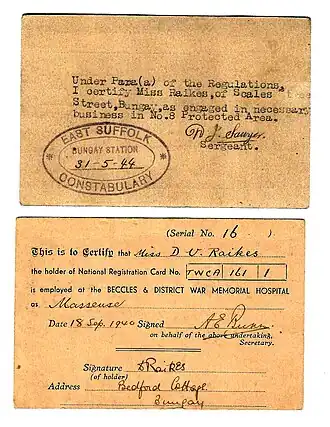 Under Para(a) of the Regulations,
I certify Miss Raikes, of Scales
Street, Bungay, as engaged in necessary
business in No.8 Protected Area.
J. Sawyer.
Sergeant.
EAST SUFFOLK
BUNGAY STATION
31-5-44
CONSTABULARY
(Serial No. 16 )
This is to Certify that Miss D V. Raikes
the holder of National Registration Card No. TWCA 161 1
is employed at the BECCLES & DISTRICT WAR MEMORIAL HOSPITAL
as Masseuse
Date 18 Sep. 1940 Signed A E
on behalf of the above undertaking.
Secretary.
Signature D RAIKES
(of holder)
Address Bedford Cottage
Bungay